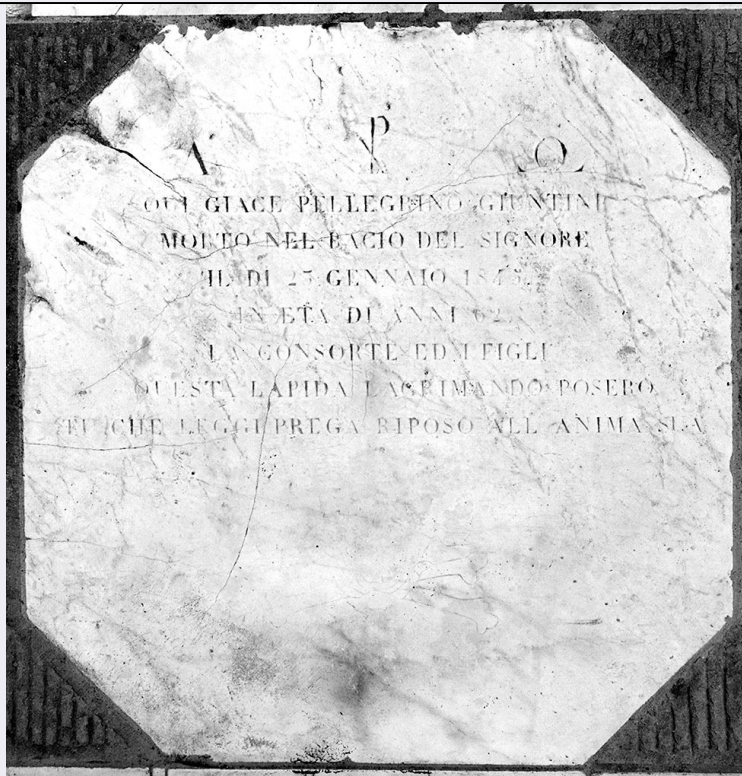 Α ☧ Ω
QUI GIACE PELLEGRINO GIUNTINI
MORTO NEL BACIO DEL SIGNORE
IL DI GENNAIO
IN ETA DI ANNI 62
LA CONSORTE ED I FIGLI
QUESTA LAPIDA LAGRIMANDO POSERO
TU CHE LEGGI PREGA RIPOSO ALL ANIMA SUA